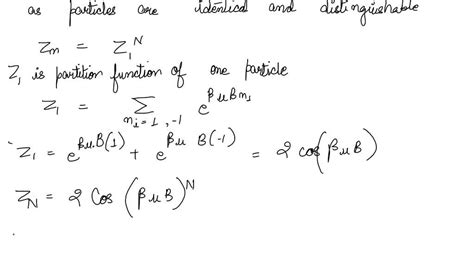 as particles are identical and distinguishable
Zm = Z₁ᴺ
Z₁ is partition function of one particle
Z₁ = Σ n₁=1,-1 e^βμBn₁
Z₁ = e^βμB(1) + e^βμ B(-1) = 2 cos(βμB)
Z_N = 2 Cos (βμB)^N